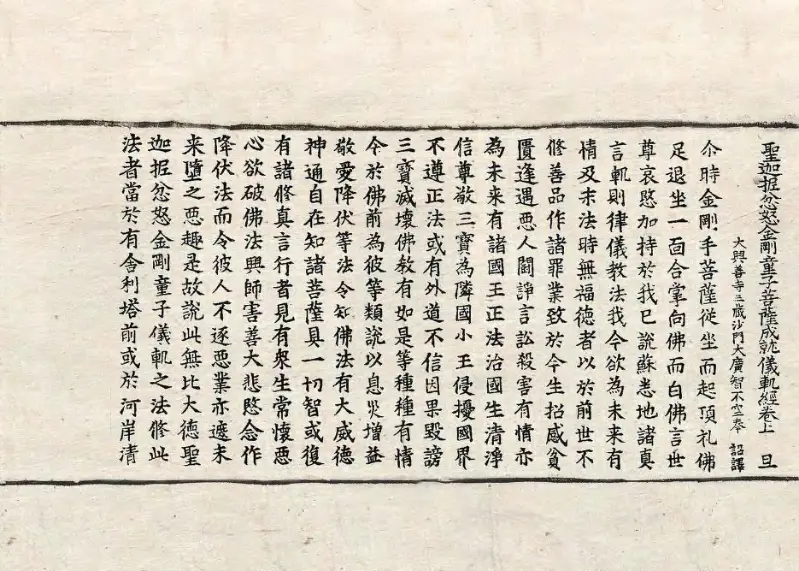 聖迦抳忿怒金剛童子菩薩成就儀軌經卷上 旦
大興善寺三藏沙門大廣智不空奉 詔譯
尒時金剛手菩薩從坐而起頂礼佛
足退坐一面合掌向佛而白佛言世
尊哀愍加持於我已說蘇悉地諸真
言軌則律儀教法我今欲為未来有
情及末法時無福德者以於前世不
修善品作諸罪業致於今生招感貧
匱逢遇惡人鬪諍言訟殺害有情亦
為未来有諸國王正法治國生清淨
信尊敬三寶為隣國小王侵擾國界
不遵正法或有外道不信因果毀謗
三寶滅壞佛教有如是等種種有情
今於佛前為彼等類說以息灾增益
敬愛降伏等法令知佛法有大威德
神通自在知諸菩薩具一切智或復
有諸修真言行者見有衆生常懷惡
心欲破佛法興師害善大悲愍念作
降伏法而令彼人不逐惡業亦遮未
来墮之惡趣是故說此無比大德聖
迦抳忿怒金剛童子儀軌之法修此
法者當於有舍利塔前或於河岸清